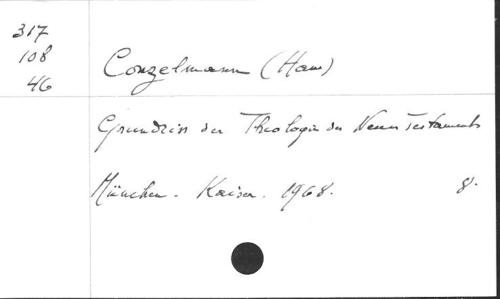 317
108
46
Conzelmann (Hans)
Grundriss der Theologie des Neuen Testaments
München. Kaiser. 1968. 8.